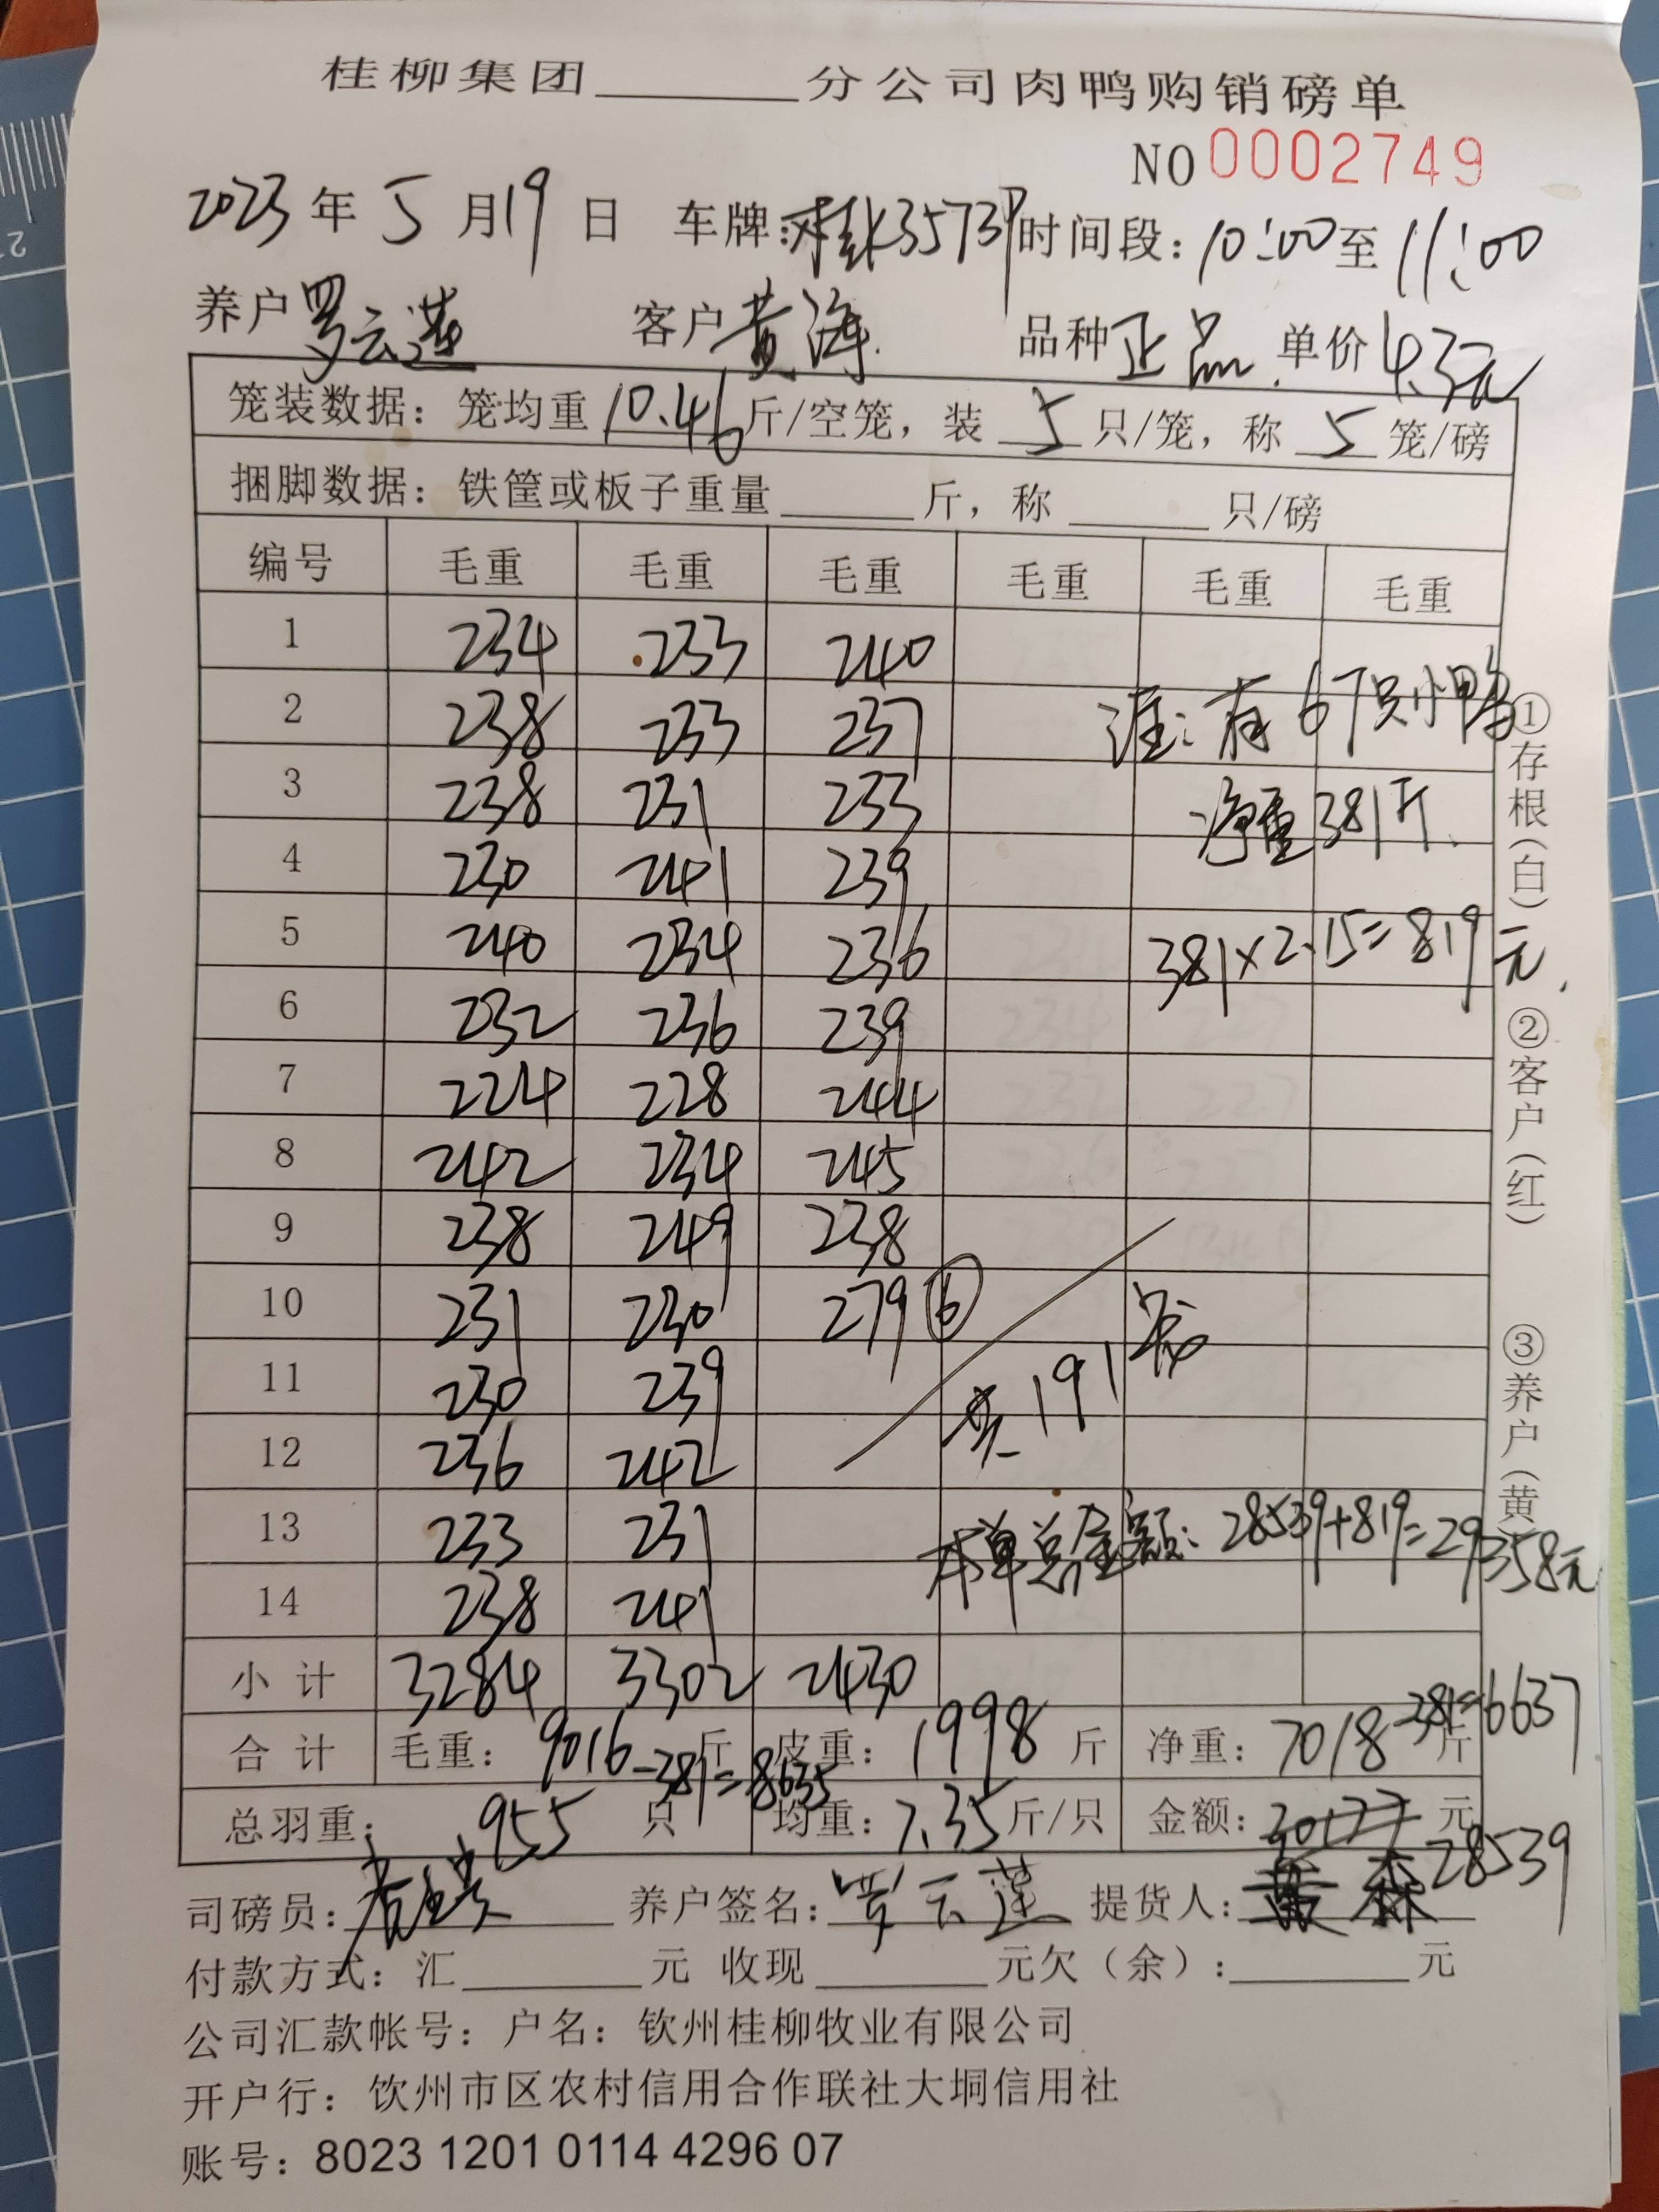 桂柳集团______分公司肉鸭购销磅单
NO 0002749
2023年5月19日 车牌:桂K3573P 时间段:10:00至11:00
养户罗云莲 客户黄海 品种正品 单价4.3元
笼装数据:笼均重10.46斤/空笼,装5只/笼,称5笼/磅
捆脚数据:铁筐或板子重量______斤,称______只/磅
编号 毛重 毛重 毛重 毛重 毛重 毛重
1 234 233 240
2 238 233 237 注:有67只小鸭
3 238 231 233 净重381斤
4 230 241 239
5 240 234 236 381×2.15=819元
6 232 236 239
7 224 228 244
8 242 234 245
9 238 249 238
10 231 230 279⑥
11 230 239 共191笼
12 236 242
13 233 231 本单总金额:28539+819=29358元
14 238 241
小计 3284 3302 2430
合计 毛重:9016-381=8635斤 皮重:1998斤 净重:7018-381=6637斤
总羽重:955只 均重:7.35斤/只 金额:30177元 28539
司磅员: 养户签名:罗云莲 提货人:森
付款方式:汇______元 收现______元欠(余):______元
公司汇款帐号:户名:钦州桂柳牧业有限公司
开户行:饮州市区农村信用合作联社大垌信用社
账号:8023 1201 0114 4296 07
①存根(白) ②客户(红) ③养户(黄